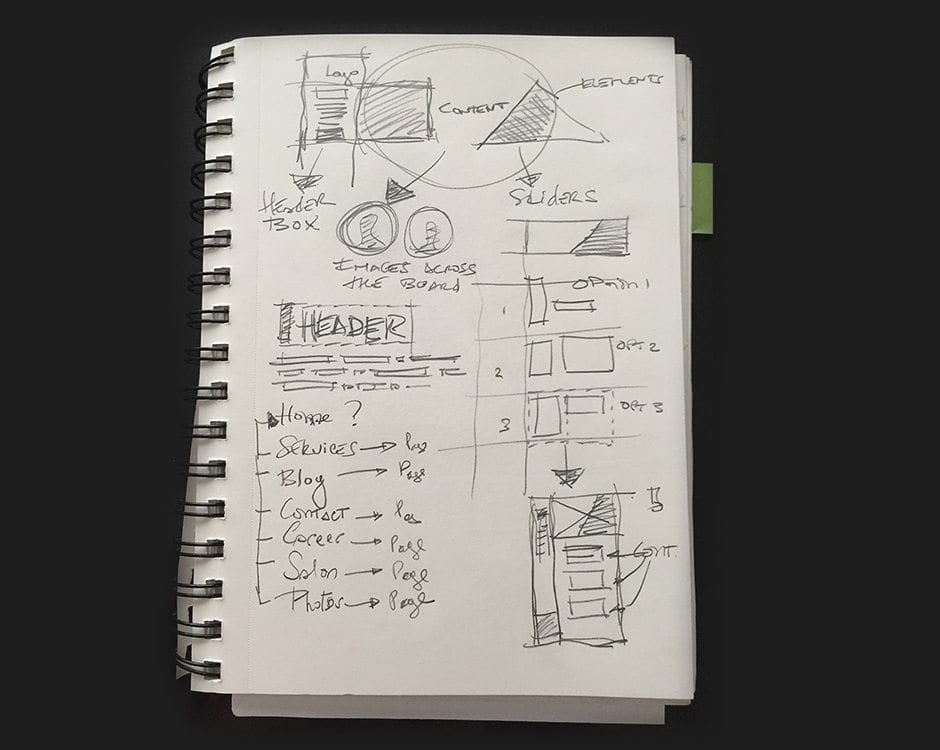 Logo
CONTENT
ELEMENTS
HEADER
BOX
SLIDERS
IMAGES ACROSS
THE BOARD
OPTION 1
1
HEADER
OPT 2
2
OPT 3
3
Home ?
SERVICES → Pag
Blog → Page
CONTACT → Pag
Career → Page
Salon → Page
Photos → Page
CONT.